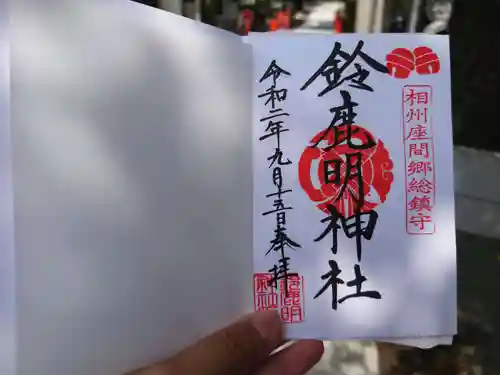 相州座間郷総鎮守
鈴鹿明神社
令和二年九月十五日奉拝
鈴鹿明神社